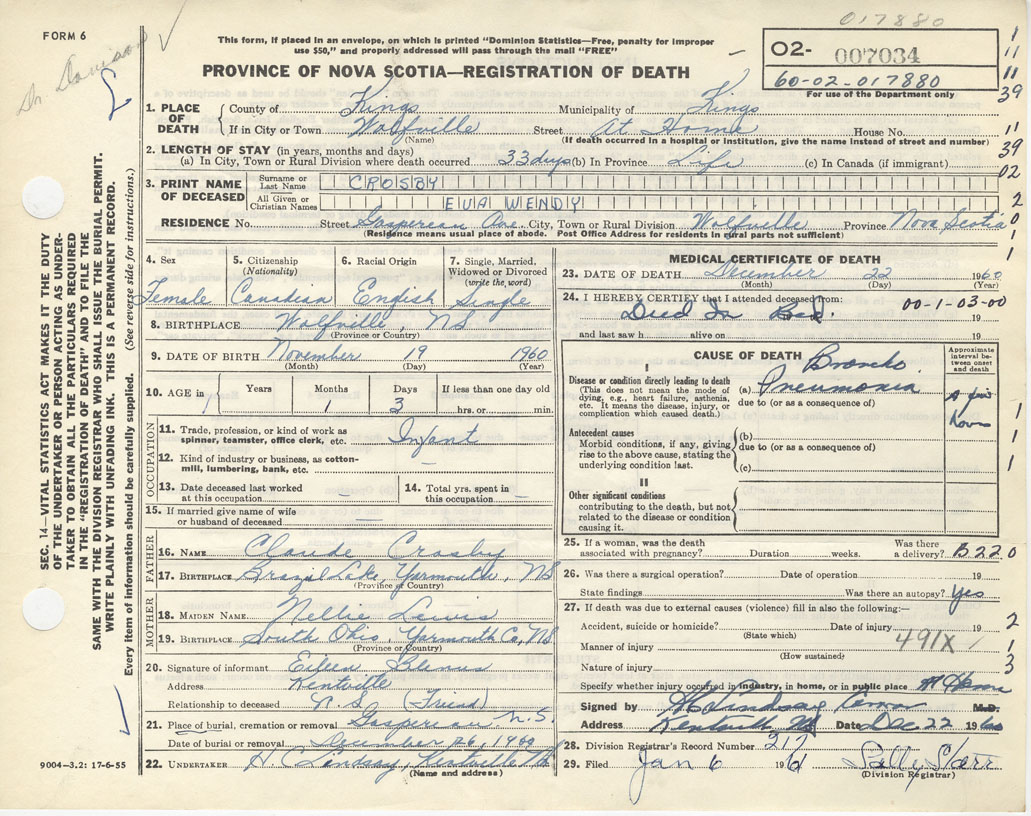 017880
FORM 6
This form, if placed in an envelope, on which is printed "Dominion Statistics—Free, penalty for improper
use $50," and properly addressed will pass through the mail "FREE"
02- 007034
60-02-017880
For use of the Department only
PROVINCE OF NOVA SCOTIA—REGISTRATION OF DEATH
1. PLACE OF DEATH County of Kings Municipality of Kings
If in City or Town Wolfville Street At Home House No.
(Name) (If death occurred in a hospital or Institution, give the name instead of street and number)
2. LENGTH OF STAY (in years, months and days)
(a) In City, Town or Rural Division where death occurred 33 days (b) In Province Life (c) In Canada (if immigrant)
3. PRINT NAME OF DECEASED Surname or Last Name CROSBY
All Given or Christian Names EVA WENDY
RESIDENCE No. Street Gasperean Ave. City, Town or Rural Division Wolfville Province Nova Scotia
(Residence means usual place of abode. Post Office Address for residents in rural parts not sufficient)
4. Sex 5. Citizenship (Nationality) 6. Racial Origin 7. Single, Married, Widowed or Divorced (write the word)
Female Canadian English Single
8. BIRTHPLACE Wolfville, NS
(Province or Country)
9. DATE OF BIRTH November 19 1960
(Month) (Day) (Year)
10. AGE in Years Months Days If less than one day old
1 3 hrs. or min.
OCCUPATION
11. Trade, profession, or kind of work as spinner, teamster, office clerk, etc. Infant
12. Kind of industry or business, as cotton-mill, lumbering, bank, etc. —
13. Date deceased last worked at this occupation — 14. Total yrs. spent in this occupation —
15. If married give name of wife or husband of deceased —
FATHER
16. NAME Claude Crosby
17. BIRTHPLACE Brazil Lake, Yarmouth, NS
(Province or Country)
MOTHER
18. MAIDEN NAME Nellie Lewis
19. BIRTHPLACE South Ohio, Yarmouth Co, NS
(Province or Country)
20. Signature of informant Eileen
Address Kentville
Relationship to deceased N.S (Friend)
21. Place of burial, cremation or removal Gasperean N.S.
Date of burial or removal December 26, 1960
22. UNDERTAKER H Lindsay, Kentville NS
(Name and address)
MEDICAL CERTIFICATE OF DEATH
23. DATE OF DEATH December 22 1960
(Month) (Day) (Year)
24. I HEREBY CERTIFY that I attended deceased from: 00-1-03-00
Died In Bed. 19
and last saw h alive on 19
CAUSE OF DEATH
Approximate interval between onset and death
I
Disease or condition directly leading to death
(This does not mean the mode of dying, e.g., heart failure, asthenia, etc. It means the disease, injury, or complication which caused death.)
(a) Broncho Pneumonia
due to (or as a consequence of)
A few hours
Antecedent causes
Morbid conditions, if any, giving rise to the above cause, stating the underlying condition last.
(b)
due to (or as a consequence of)
(c)
II
Other significant conditions
contributing to the death, but not related to the disease or condition causing it.
25. If a woman, was the death associated with pregnancy? Duration weeks. Was there a delivery? B220
26. Was there a surgical operation? Date of operation 19
State findings Was there an autopsy? Yes
27. If death was due to external causes (violence) fill in also the following:—
Accident, suicide or homicide? Date of injury 19
(State which)
Manner of injury 491X
(How sustained)
Nature of injury
Specify whether injury occurred in industry, in home, or in public place At Home
Signed by M.D.
Address Kentville NS Date Dec 22 1960
28. Division Registrar's Record Number 217
29. Filed Jan 6 1961 Sally Starr
(Division Registrar)
SEC. 14—VITAL STATISTICS ACT MAKES IT THE DUTY
OF THE UNDERTAKER OR PERSON ACTING AS UNDER-
TAKER TO OBTAIN ALL THE PARTICULARS REQUIRED
IN THE "REGISTRATION OF DEATH" AND TO FILE THE
SAME WITH THE DIVISION REGISTRAR WHO SHALL ISSUE THE BURIAL PERMIT.
WRITE PLAINLY WITH UNFADING INK. THIS IS A PERMANENT RECORD.
Every item of information should be carefully supplied. (See reverse side for instructions.)
9004-3.2: 17-6-55
1
11
11
39
11
39
02
2
0
1
1
1
1
2
1
3